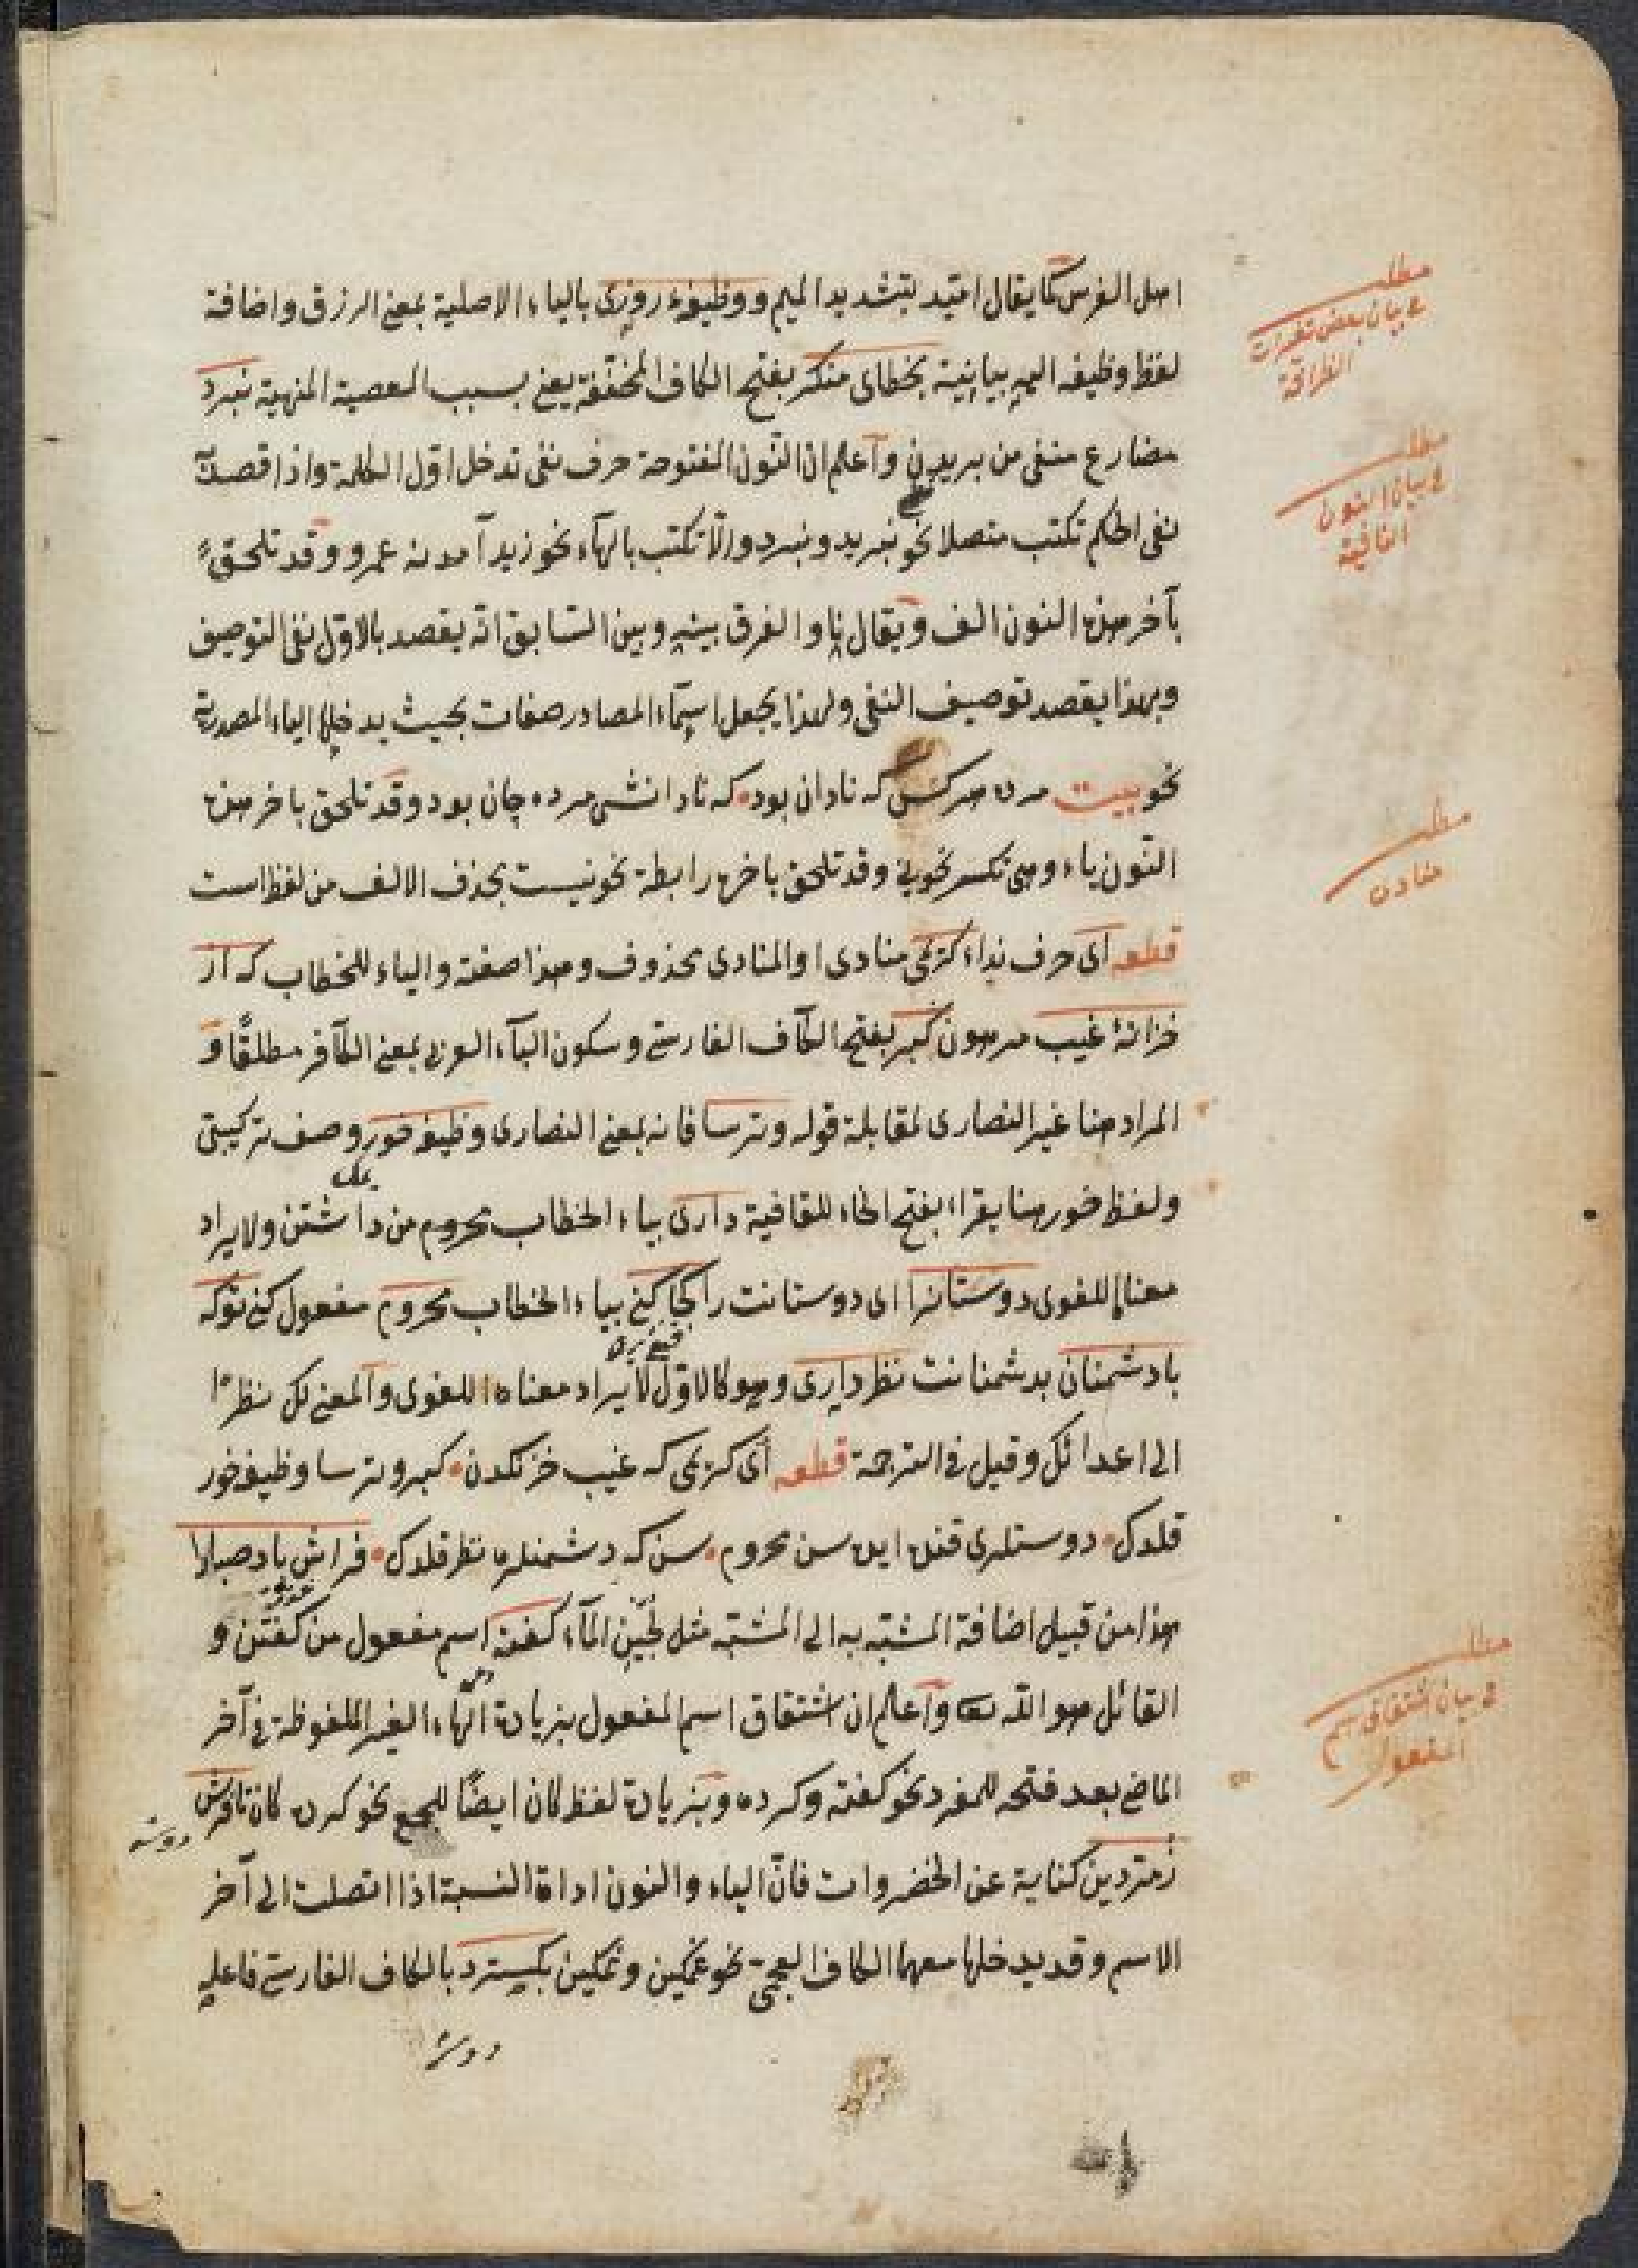 اهل الفرس كما يقال امّيد بتشديد الميم ووظيفهٔ روزى بالياء الاصلية بمعنى الرزق واضافة
لفظ وظيفه اليه بيانية بخطاى منكر بفتح الكاف المخففة يعنى بسبب المعصية المنهية نبرد
مضارع منفى من بريدن وآعلم ان النّون المفتوحة حرف نفى تدخل اوّل الكلمة واذا قصدت
نفى الحكم تكتب متصلا نحو نبريد ونبرد والّا تكتب بالهآء نحو زيد آمد نه عمرو وقد تلحق
بآخر هذه النون الف ويقال نا والفرق بينه وبين السّابق انّه يقصد بالاوّل نفى التوصيف
وبهذا يقصد توصيف النفى ولهذا يجعل اسمآء المصادر صفات بحيث يدخلها الياء المصدرية
نحو بيت مرده هركس كه نادان بود كه نادانشى مرده جان بود وقد تلحق باخر هذه
النّون ياء وهى تكسر نحو نى وقد تلحق باخره رابطة نحو نيست بحذف الالف من لفظ است
قطعه اى حرف نداء كريمى منادى او المنادى محذوف وهذا صفته والياء للخطاب كه از
خزانهٔ غيب مرهون كبر بفتح الكآف الفارسى وسكون البآء العربى بمعنى الكآفر مطلقًا و
المراد هنا غير النصارى لمقابلة قوله وترسا فانه بمعنى النصارى وظيفه خور وصف تركيبى
ولفظ خور هنا يقراء بفتح الخاء للقافية دارى بياء الخطاب محروم من داشتن ولا يراد
معناها اللغوى دوستانرا اى دوستانت را كجا كنى بياء الخطاب محروم مفعول كنى توكه
با دشمنان بدشمنانت نظر دارى وهو كالاوّل لا يراد معناه اللغوى والمعنى لك نظرًا
الى اعدائك وقيل فى الترجمة قطعه اى كريمى كه غيب خزنكدن كبر وترسا وظيفه خور
قلدك دوستلرى قنده ايده سن محروم سن كه دشمنلره نظر قلدك فراش باد صبارا
هذا من قبيل اضافة المشبّه به الى المشبّه مثل لجين المآء كفته اسم مفعول من كفتن و
القائل هو الله تع وآعلم ان اشتقاق اسم المفعول بزيادة الهاء الغير الملفوظة فى آخر
الماضى بعد فتحه للمفرد نحو كفته وكرده وبزيادة لفظ كان ايضًا للجمع نحو كرده كان تا فرش
زمرّدين كناية عن الخضروات فانّ الياء والنون اداة النسبة اذا اتصلت الى آخر
الاسم وقد يدخلها معهما الكاف العجمى نحو غمكين ونمكين بكسترد بالكاف الفارسى فاعله
مطلب
فى بيان بعض تغيرات
مطلب
فى بيان النون
النافية
مطلب
منادى
مطلب
فى بيان اشتقاق اسم
المفعول